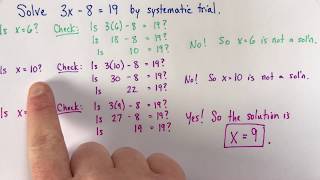 Solve 3x - 8 = 19 by systematic trial.
Is x = 6? Check: Is 3(6) - 8 = 19?
Is 18 - 8 = 19?
Is 10 = 19? No! So x = 6 is not a soln.
Is x = 10? Check: Is 3(10) - 8 = 19?
Is 30 - 8 = 19?
Is 22 = 19? No! So x = 10 is not a soln.
Is x = Check: Is 3(9) - 8 = 19?
Is 27 - 8 = 19? Yes! So the solution is
Is 19 = 19? x = 9.